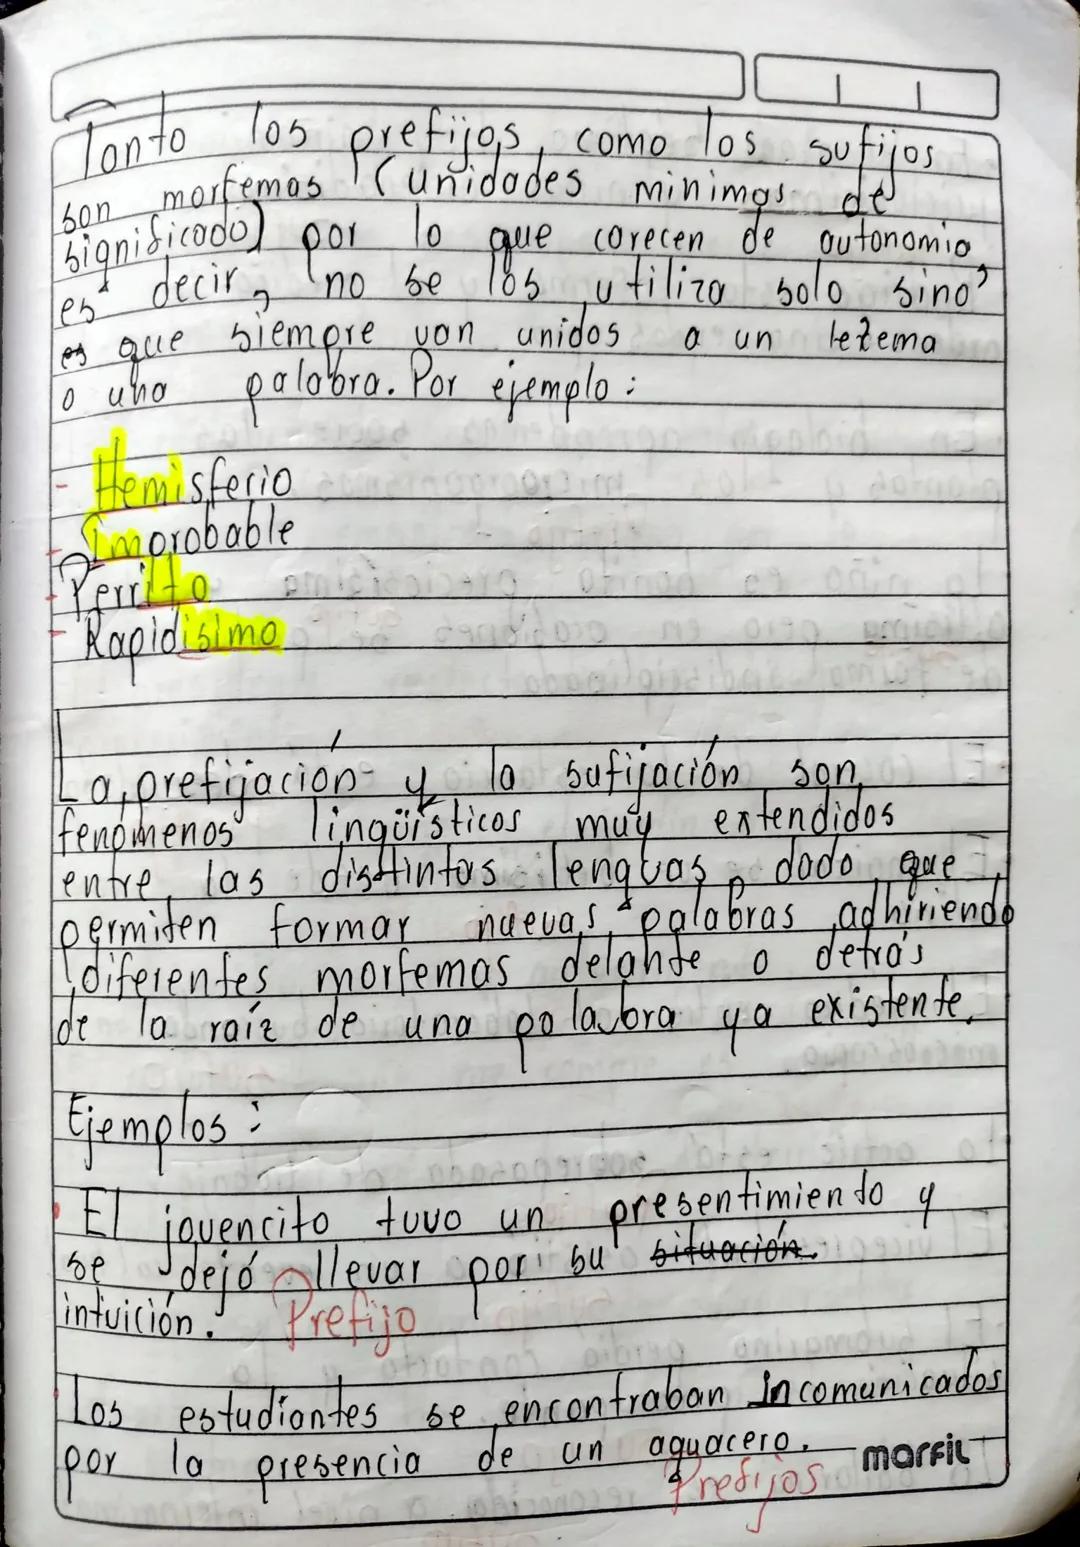 Tanto los prefijos, como los sufijos
son morfemas (unidades minimas de
significado) por lo que carecen de autonomia,
es decir, no se los utiliza solo sino
es que siempre van unidos a un lexema
o una palabra. Por ejemplo:
- Hemisferio
- Improbable
- Perrito
- Rapidisimo
La prefijación y la sufijación son
fenómenos lingüísticos muy extendidos
entre las distintas lenguas, dado que
permiten formar nuevas palabras adhiriendo
diferentes morfemas delante o detrás
de la raíz de una palabra ya existente.
Ejemplos:
El jovencito tuvo un presentimiento y
se dejó llevar por su situación.
intuición. Prefijo
Los estudiantes se encontraban Incomunicados
por la presencia de un aguacero. marfil
Prefijos